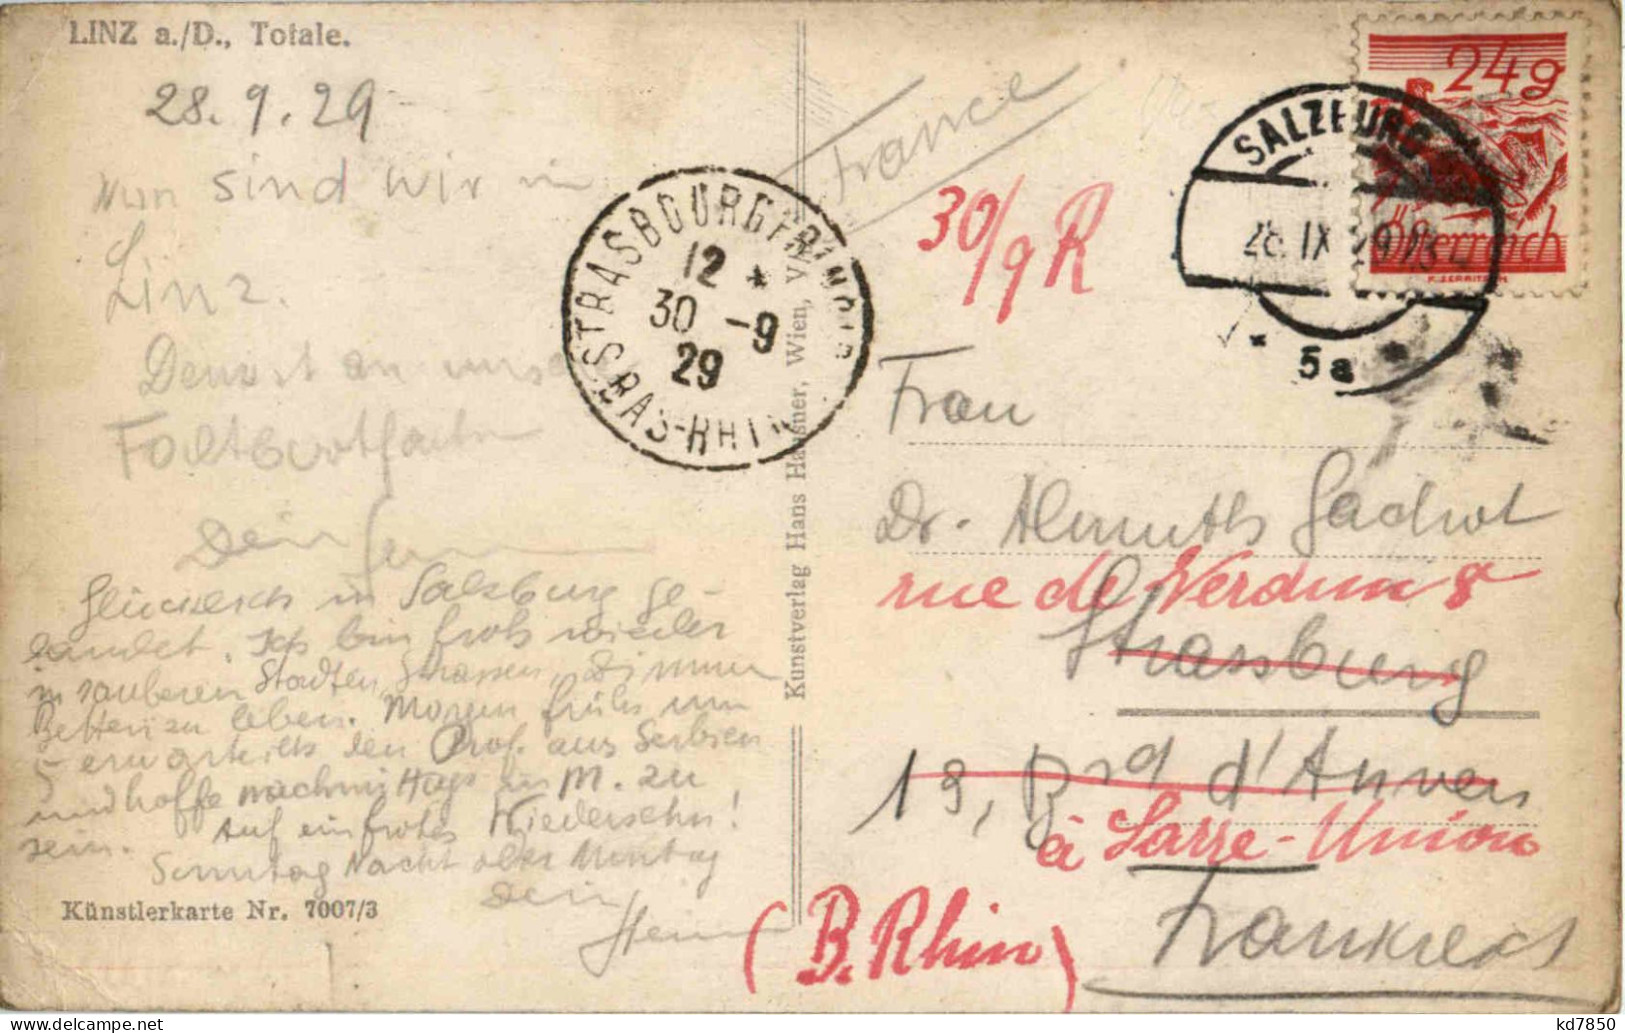 LINZ a./D., Totale.
28.9.29
Nun sind wir in
Linz.
Denkst an unsere
Dein
Glücklich in Salzburg ge-
landet. Ich bin froh wieder
in sauberen Städten, Strassen, Zimmern
Betten zu leben. Morgen früh um
5 erwarte ich den Prof. aus Serbien
und hoffe nachmittags in M. zu
sein. Auf ein frohes Wiedersehn!
Sonntag Nacht oder Montag
Dein
Künstlerkarte Nr. 7007/3
Kunstverlag Hans Hausner, Wien, V/
STRASBOURG
12 *
30 -9
29
BAS-RHIN
France
30/9 R
24g
Österreich
SALZBURG
28. IX 29
* 5a *
Frau
Dr. Almuth Gachot
rue de Verdun 8
Strassburg
19, Brd d'Anvers
à Sarre-Union
Frankreich
(B. Rhin)
kd7850